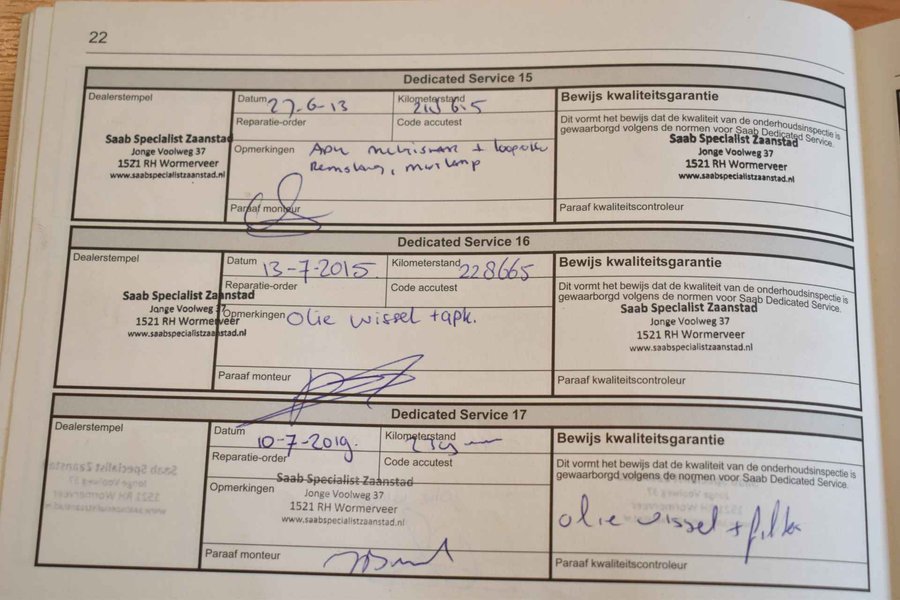 22
Dedicated Service 15
Dealerstempel
Saab Specialist Zaanstad
Jonge Voolweg 37
1521 RH Wormerveer
www.saabspecialistzaanstad.nl
Datum 27-6-13
Kilometerstand
Reparatie-order
Code accutest
Opmerkingen APK +
Paraaf monteur
Bewijs kwaliteitsgarantie
Dit vormt het bewijs dat de kwaliteit van de onderhoudsinspectie is
gewaarborgd volgens de normen voor Saab Dedicated Service.
Saab Specialist Zaanstad
Jonge Voolweg 37
1521 RH Wormerveer
www.saabspecialistzaanstad.nl
Paraaf kwaliteitscontroleur
Dedicated Service 16
Dealerstempel
Saab Specialist Zaanstad
Jonge Voolweg 37
1521 RH Wormerveer
www.saabspecialistzaanstad.nl
Datum 13-7-2015
Kilometerstand 228665
Reparatie-order
Code accutest
Opmerkingen olie wissel + apk.
Paraaf monteur
Bewijs kwaliteitsgarantie
Dit vormt het bewijs dat de kwaliteit van de onderhoudsinspectie is
gewaarborgd volgens de normen voor Saab Dedicated Service.
Saab Specialist Zaanstad
Jonge Voolweg 37
1521 RH Wormerveer
www.saabspecialistzaanstad.nl
Paraaf kwaliteitscontroleur
Dedicated Service 17
Dealerstempel
Datum 10-7-2019.
Kilometerstand
Reparatie-order
Code accutest
Opmerkingen
Saab Specialist Zaanstad
Jonge Voolweg 37
1521 RH Wormerveer
www.saabspecialistzaanstad.nl
Paraaf monteur
Bewijs kwaliteitsgarantie
Dit vormt het bewijs dat de kwaliteit van de onderhoudsinspectie is
gewaarborgd volgens de normen voor Saab Dedicated Service.
olie wissel + filter
Paraaf kwaliteitscontroleur